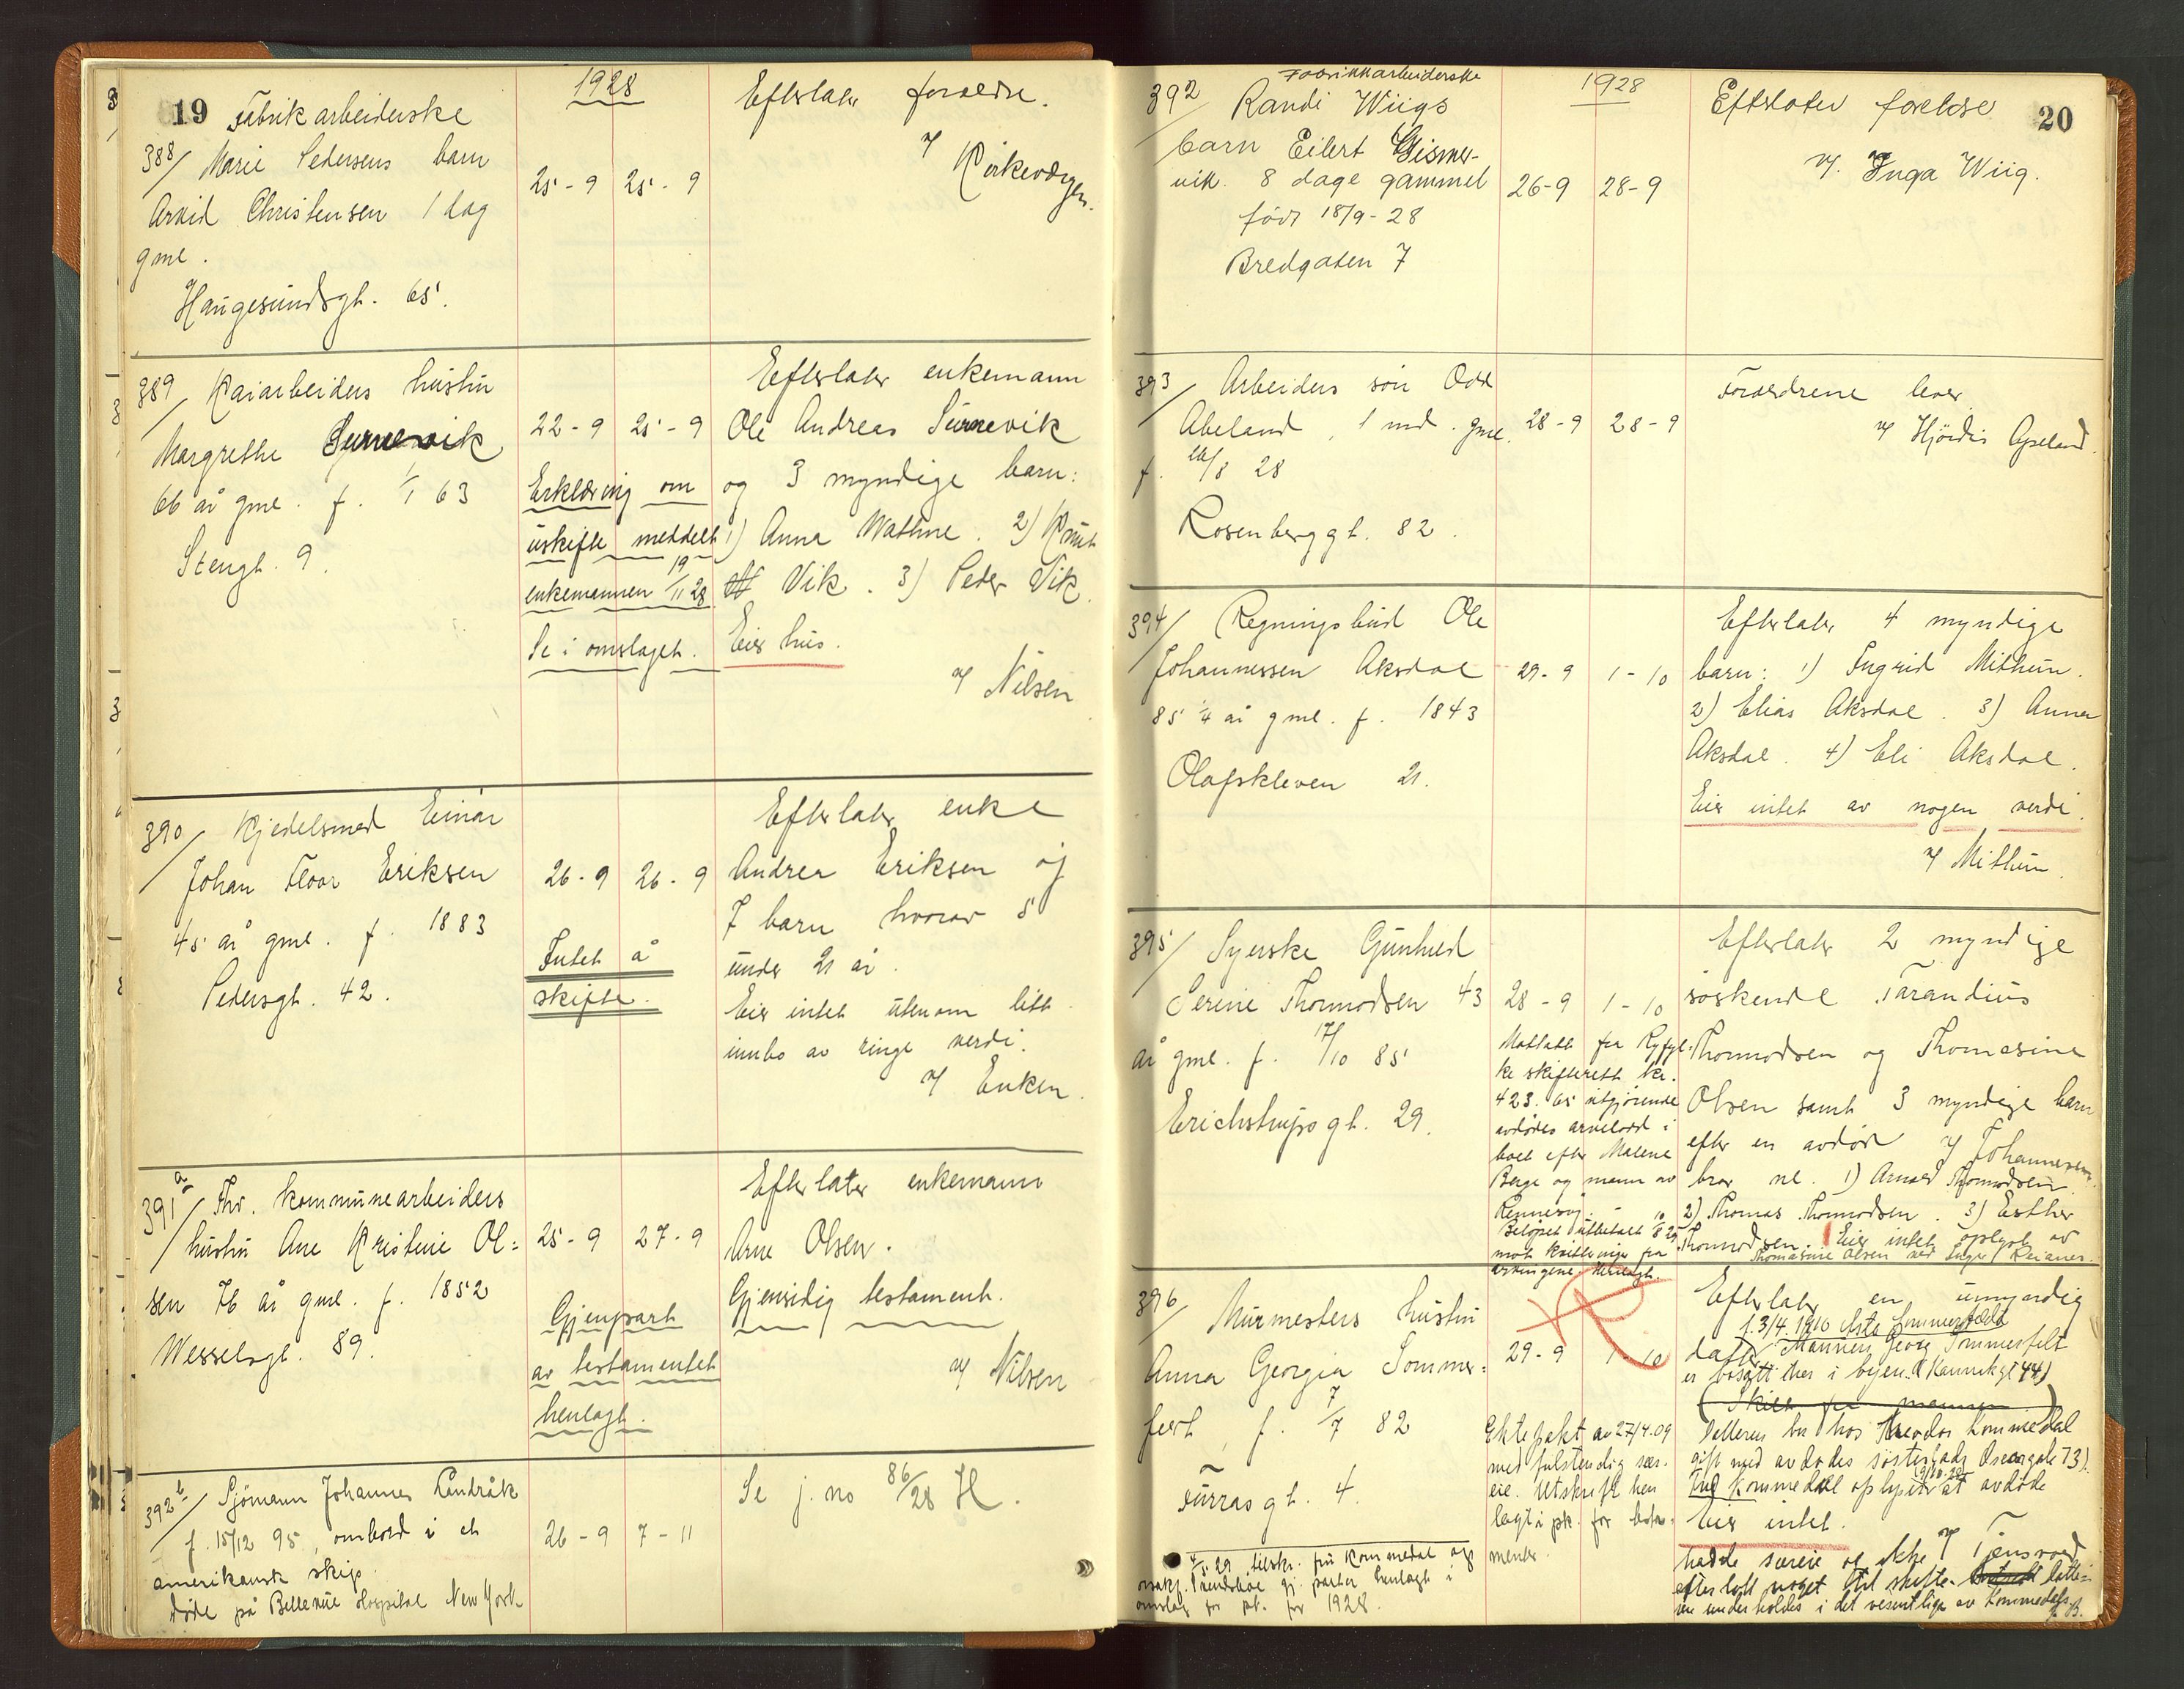 19
Fabrikarbeiderske
388/ Marie Pedersens barn
Arvid Christensen 1 dag
gml.
Haugesundsgt. 65.
1928
25-9 25-9
Efterlater foreldre.
v/ Kirkevergen.
389/ Kaiarbeiders hustru
Margrethe Surnevik
66 år gml. f. 1/1 63
Stengt. 9.
22-9 25-9
Erklæring om
uskifte meddelt
enkemannen 19/11 28
Se i omslaget.
Efterlater enkemann
Ole Andreas Surnevik
og 3 myndige barn:
1) Anna Wathne. 2) Knut
Vik. 3) Peder Vik.
Eier hus.
v/ Nilsen
390/ Kjedelsmed Einar
Johan Floor Eriksen
45 år gml. f. 1883
Pedersgt. 42.
26-9 26-9
Intet å
skifte.
Efterlater enke
Andrea Eriksen og
7 barn hvorav 5
under 21 år.
Eier intet utenom litt
innbo av ringe verdi.
v/ Enken.
391 a/ Fhv. kommunearbeiders
hustru Ane Kristine Ol=
sen 76 år gml. f. 1852
Wesselsgt. 89.
25-9 27-9
Gjenpart
av testamentet
henlagt.
Efterlater enkemann
Arne Olsen.
Gjensidig testament.
v/ Nilsen
392 b/ Sjömann Johannes Landråk
f. 15/12 95, ombord i et
amerikansk skip.
døde på Bellevue Hospital New York
26-9 7-11
Se j. no 86/28 H.
20
392/ Fabrikkarbeiderske
Randi Wiigs
barn Eilert Gismer-
vik. 8 dage gammel
født 18/9-28
Bredgaten 7
1928
26-9 28-9
Efterlater foreldre
v/ Inga Wiig.
393/ Arbeiders sön Odd
Abeland, 1 md. gml.
f. /8 28
Rosenberggt. 82.
28-9 28-9
Foreldrene lever
v/ Hjördis Apeland.
394/ Regningsbud Ole
Johannessen Aksdal
85 1/4 år gml. f. 1843
Olafskleven 21.
29-9 1-10
Efterlater 4 myndige
barn: 1) Ingrid Mithun.
2) Elias Aksdal. 3) Anna
Aksdal. 4) Eli Aksdal.
Eier intet av nogen verdi.
v/ Mithun.
395/ Syerske Gunhild
Serine Thormodsen 43
år gml. f. 17/10 85
Erichstrupsgt. 29.
28-9 1-10
Mottatt fra Ryfyl-
ke skifterett kr.
423.65 utgjörende
avdödes arvelodd i
boet efter Malene
Berge og mann av
Rennesöy.
Belöpet utbetalt
mot kvitteringer fra
arvingene. Henlagt.
Efterlater 2 myndige
söskende Tarandius
Thormodsen og Thomasine
Olsen samt 3 myndige barn
efter en avdöd v/ Johannessen.
bror nl. 1) Arnold Thormodsen.
2) Thomas Thormodsen. 3) Esther
Thormodsen. Eier intet oplyst av
Thomasine Olsen ved Inger Reianes.
396/ Murmesters hustru
Anna Georgia Sommer=
felt, f. 7/7 82
Furrasgt. 4.
29-9 1-10
Ektepakt av 27/4.09
med fulstendig sær-
eie. Utskrift hen
lagt i pk. for testa-
menter.
Efterlater en umyndig
f. 3/4.1910 Sommerfeldt
datter. Mannen Georg Sommerfelt
er bosatt her i byen. (Kannikgt 44)
(Skilt fra mannen)
Datteren bor hos Theodor Kommedal
gift med avdødes søster (Lads Oscarsgate 73).
Fru Kommedal oplyser at avdøde
Eier intet.
v/ Tjensvold
hadde særeie og ikke
efterlatt noget til skifte. Datte-
ren underholdes i det vesentlige av Kommedals
4/1 29 tilskr. fru Kommedal og
gj. parter henlagt i
omslag for pk. for 1928.